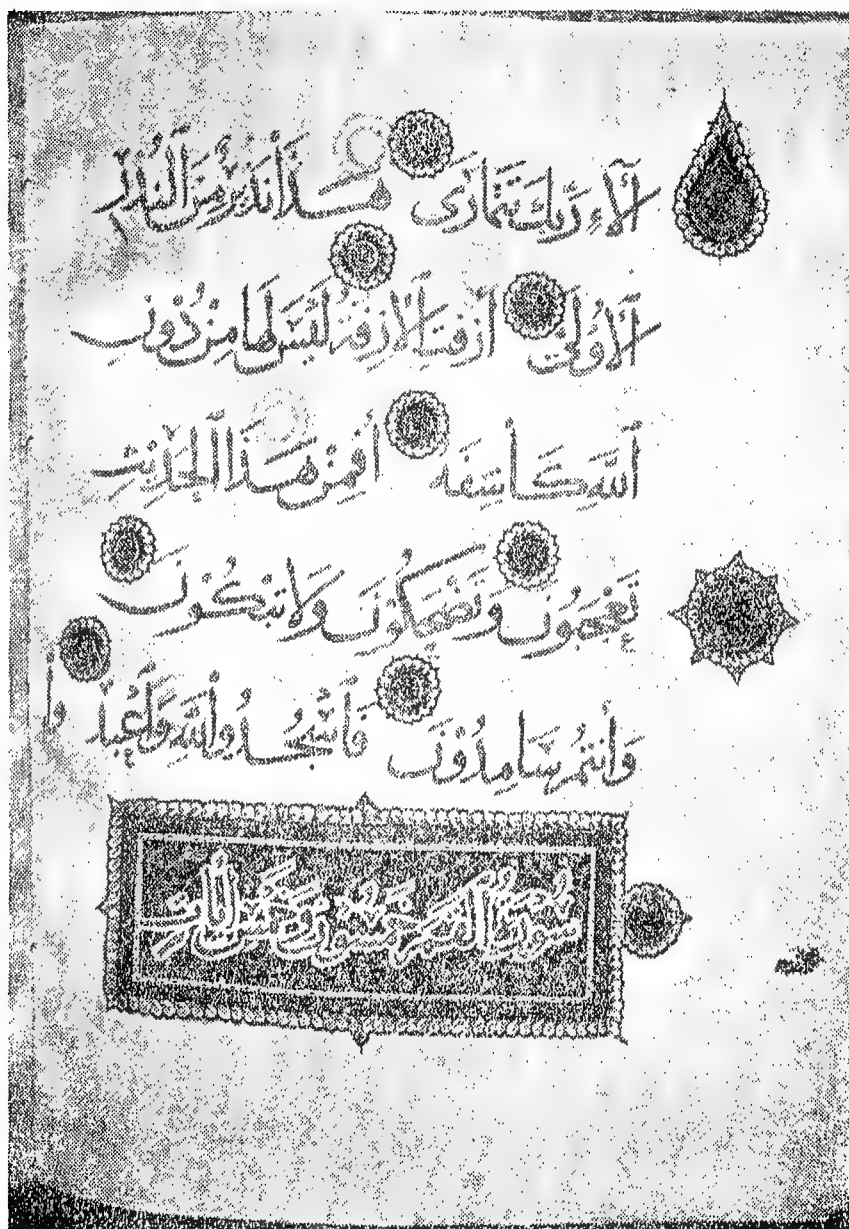 آلَآءِ رَبِّكَ تَتَمَارَى هَـذَا نَذِيرٌ مِنَ ٱلنُّذُرِ
ٱلْأُولَىٰ أَزِفَتِ ٱلْآزِفَةُ لَيْسَ لَهَا مِنْ دُونِ
ٱللَّهِ كَاشِفَةٌ أَفَمِنْ هَـذَا ٱلْحَدِيثِ
تَعْجَبُونَ وَتَضْحَكُونَ وَلَا تَبْكُونَ
وَأَنْتُمْ سَامِدُونَ فَٱسْجُدُوا لِلَّهِ وَٱعْبُدُوا
سُورَةُ ٱلْقَمَرِ خَمْسُونَ وَخَمْسُ آيَاتٍ